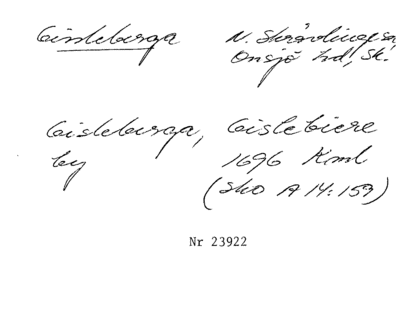 Gissleberga N. Skrävlinge sn
Onsjö hd, Sk.
Gisleberga, Gislebiere
by 1696 Kml
(Sko A 14:159)
Nr 23922